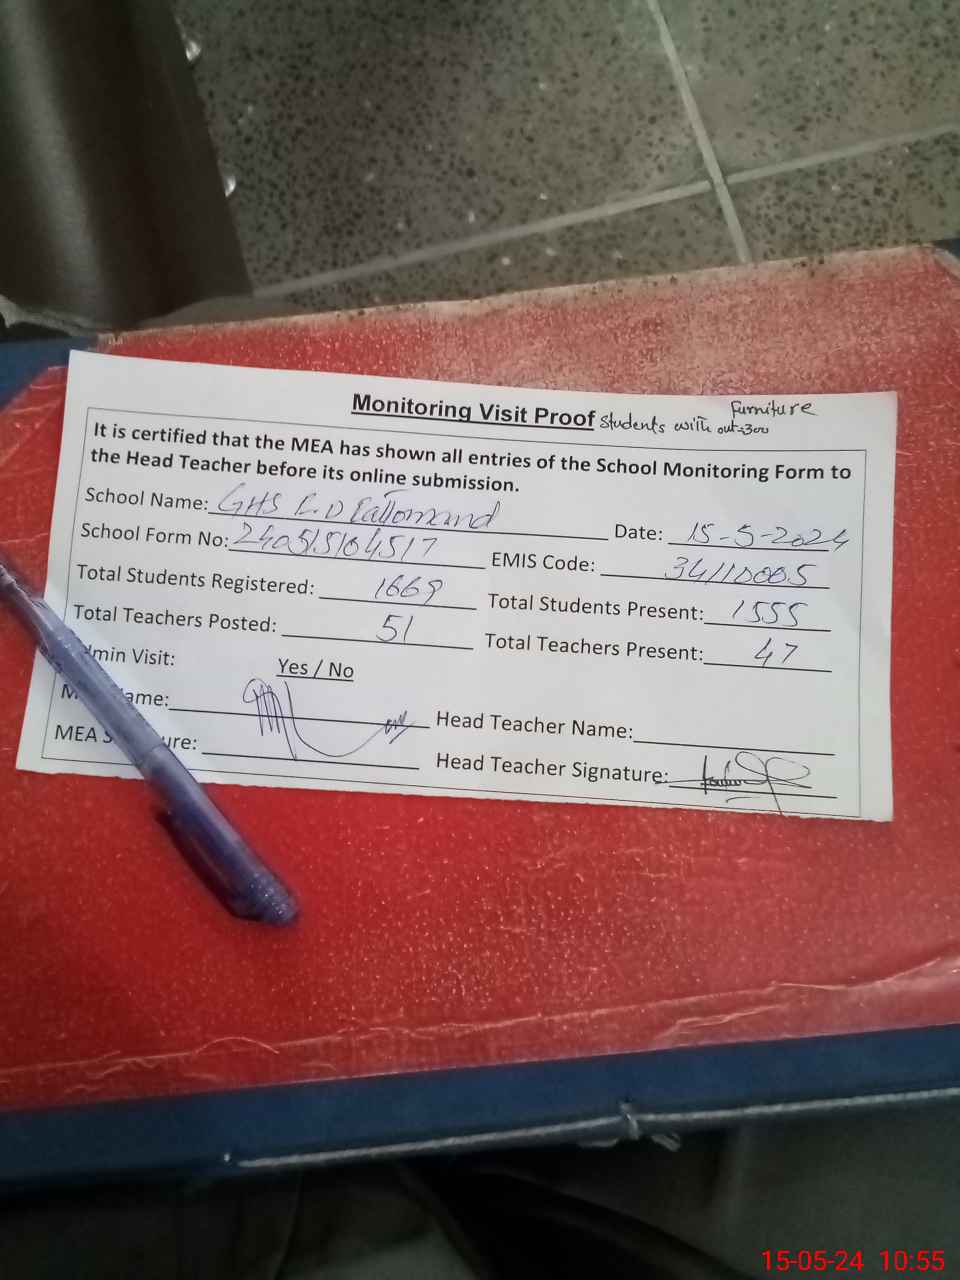 Monitoring Visit Proof Students with out=300 Furniture
It is certified that the MEA has shown all entries of the School Monitoring Form to
the Head Teacher before its online submission.
School Name: GHS Date: 15-5-2024
School Form No: 240515104517 EMIS Code: 34110005
Total Students Registered: 1669 Total Students Present: 1555
Total Teachers Posted: 51 Total Teachers Present: 47
dmin Visit: Yes / No
ame: Head Teacher Name:
MEA S ure: Head Teacher Signature:
15-05-24 10:55